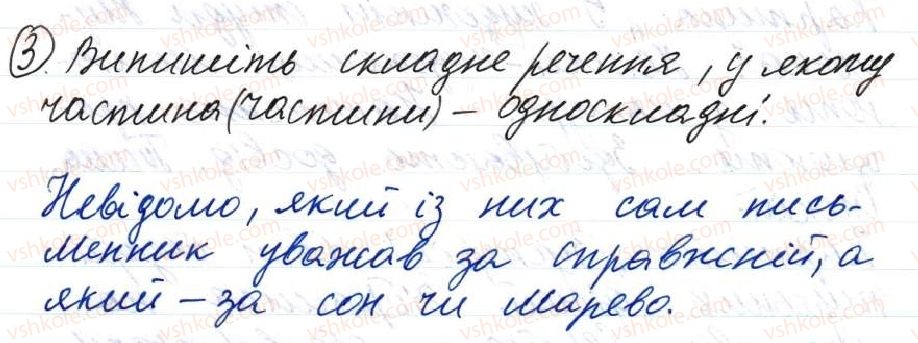 3. Випишіть складне речення, у якому
частина (частини) – односкладні.
Невідомо, який із них сам пись-
менник уважав за справжній, а
який – за сон чи марево.